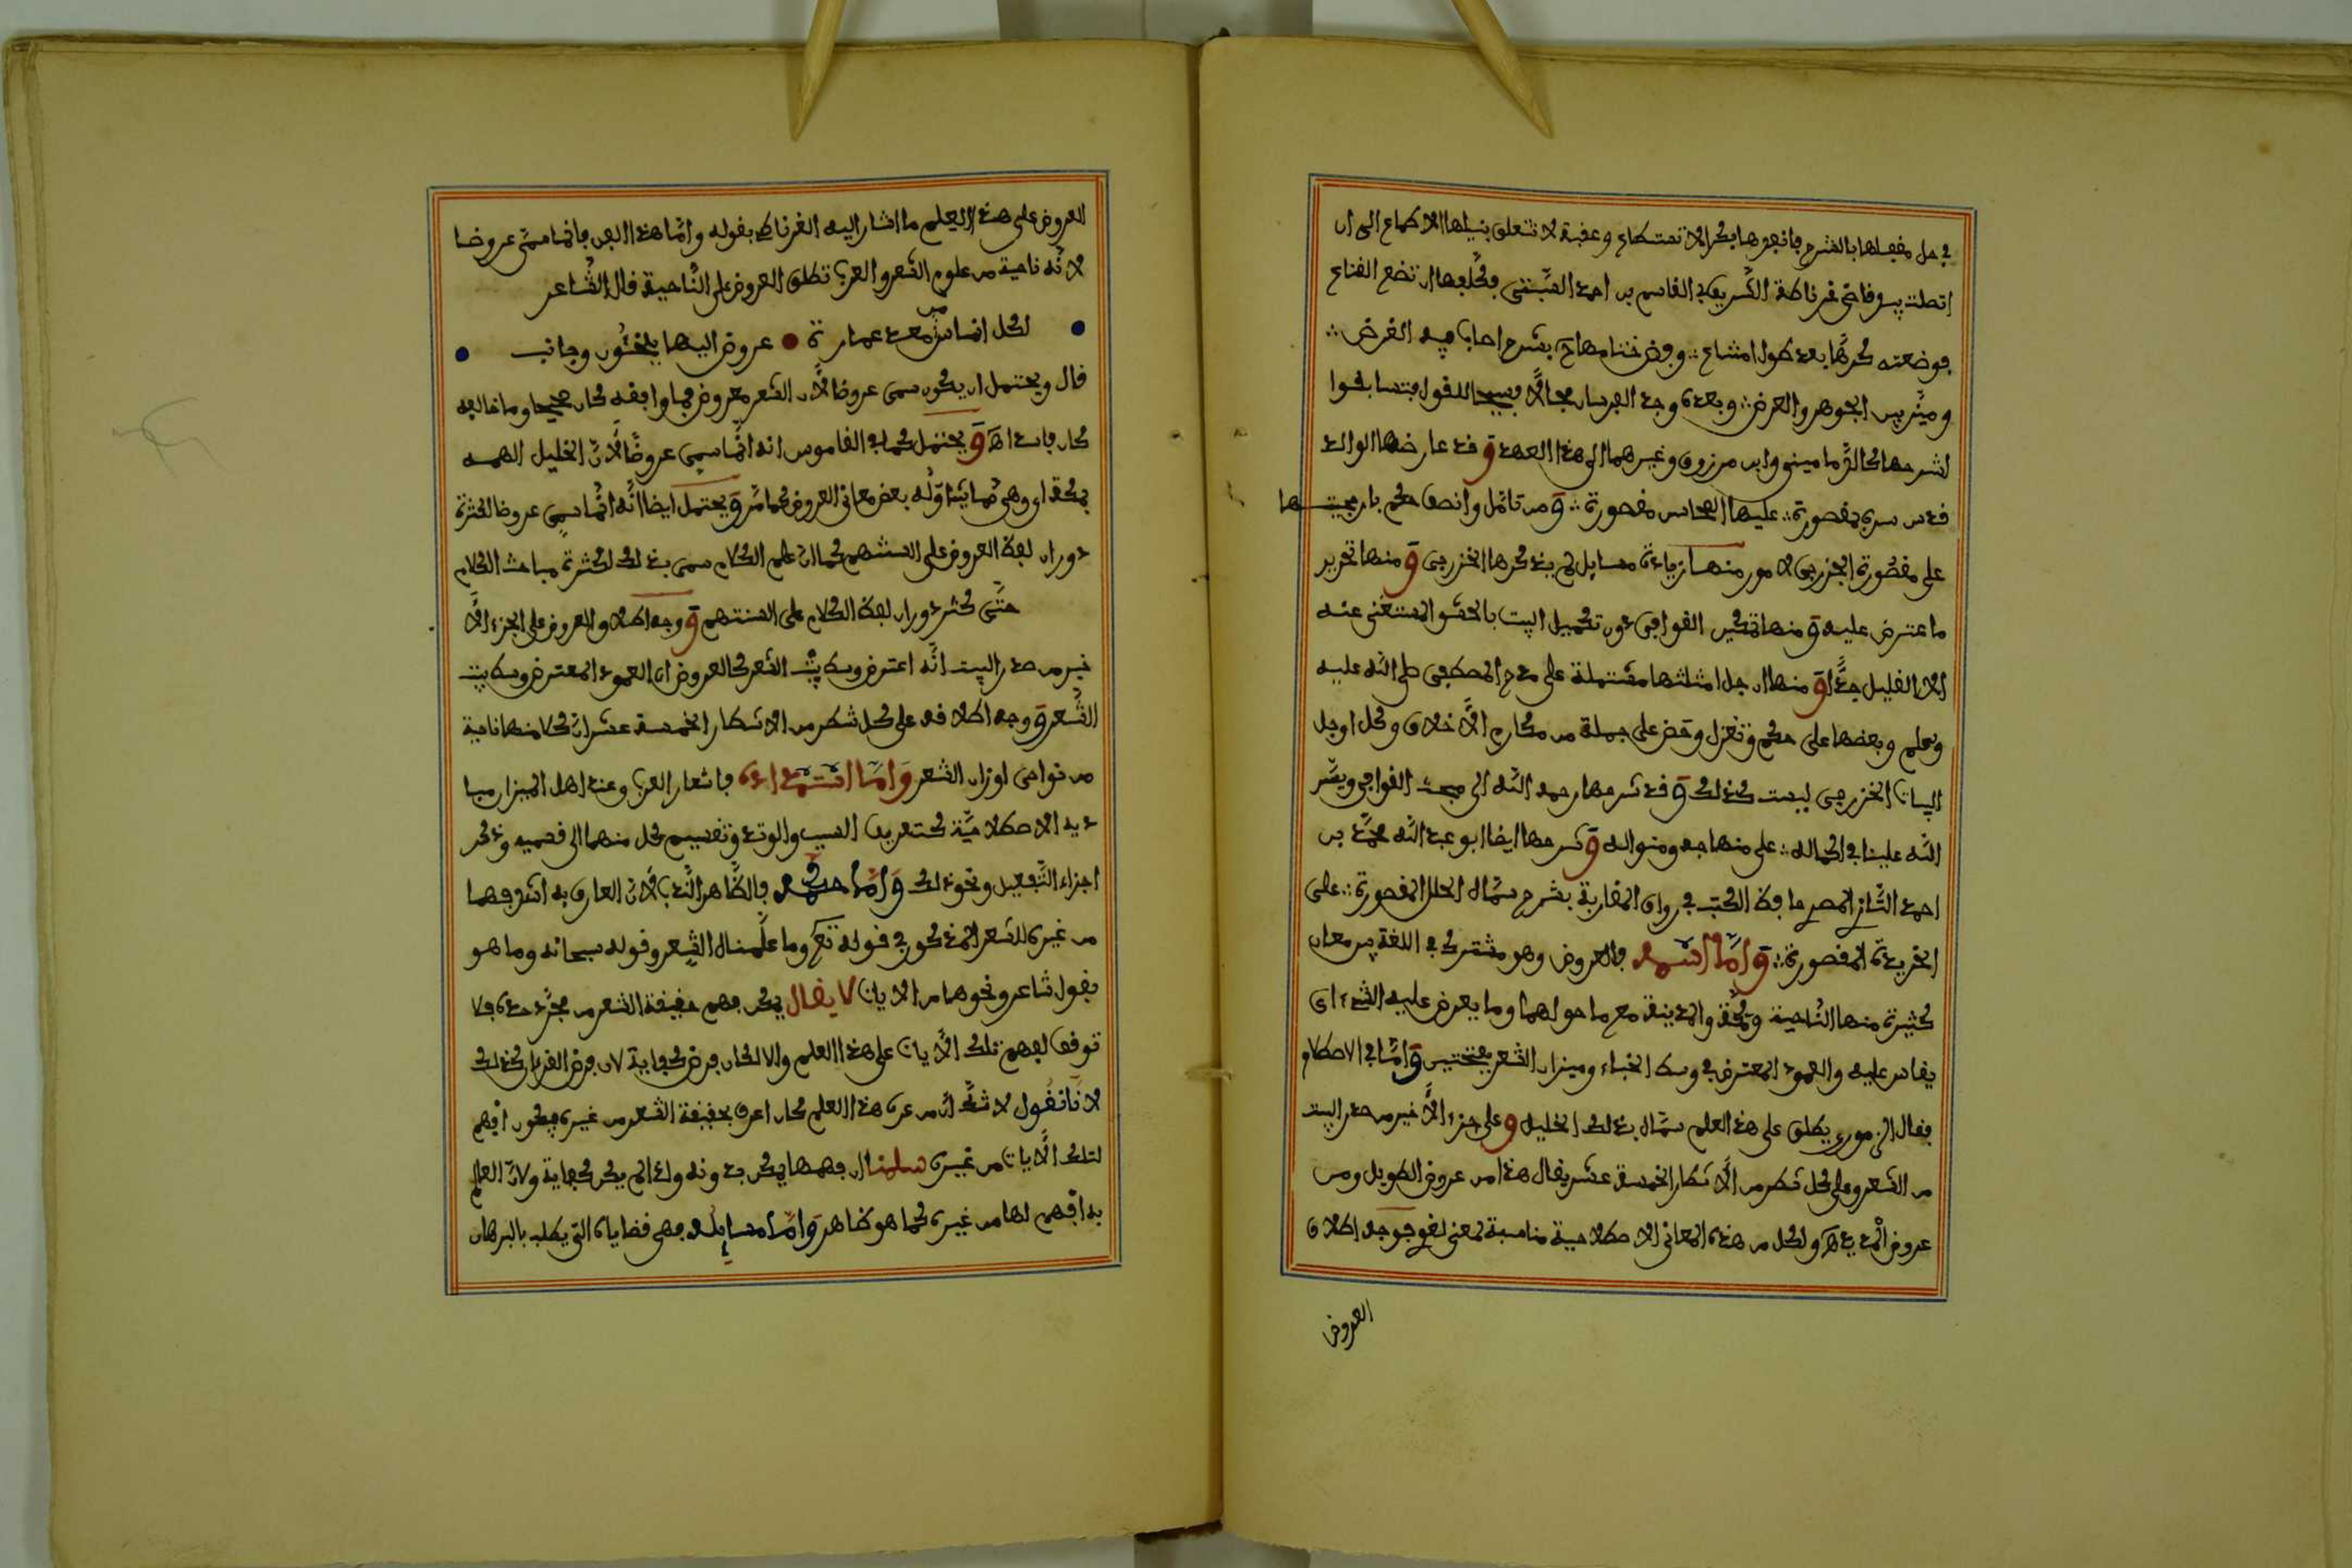 في حل مقفلها بالشرح فانفجر بها بكر لا تمتطى وعقبة لا تتعلق بنيلها الاطماع الى ان
اتصلت بيد قاضي غرناطة الشريف ابي القاسم بن احمد السبتي فكلفها ان تضع القناع
فوضعته كرها بعد طول امتناع ∴ وفض ختامها بشرح اصاب فيه الغرض ∴
وميز بين الجوهر والعرض ∴ وبعده وجد الفرسان مجالا فسيحا للقول فتسابقوا
لشرحها كالدماميني وابن مرزوق وغيرهما الى هذا العهد وقد عارضها الوالد
قدس سره بمقصورة ∴ عليها المحاسن مقصورة ∴ ومن تامل وانصف حكم بارجحيتها
على مقصورة الخزرجي لامور منها زيادة مسايل لم يذكرها الخزرجي ومنها تحرير
ما اعترض عليه ومنها تمكين القوافي دون تكميل البيت بالحشو المستغنى عنه
الا القليل جدا ومنها ان جل امثلتها مشتملة على مدح المصطفى صلى الله عليه
وسلم وبعضها على حكم وتغزل وحض على جملة من مكارم الاخلاق وكل اوجل
ابيات الخزرجي ليست كذلك وقد شرحها رحمه الله الى مبحث القوافي ويسر
الله علينا في اكماله ∴ على منهاجه ومنواله وشرحها ايضا ابو عبد الله محمد بن
احمد الشاذلي المصري حافظ الكتب في رواق المغاربة بشرح سماه الحلل المقصورة ∴ على
الخريدة المقصورة ∴ واما اسمه فالعروض وهو مشترك في اللغة بين معان
كثيرة منها الناحية ومكة والمدينة مع ما حولهما وما يعرض عليه الشيء اي
يقاس عليه والعمود المعترض في وسط الخباء وميزان الشعر بفتحتين واما في الاصطلاح
فقال يطلق على هذا العلم سماه بذلك الخليل وعلى جزء الاخير من صدر البيت
من الشعر وعلى كل شطر من الاشطار الخمسة عشر يقال هذا من عروض الطويل ومن
عروض المديد اه ولكل من هذه المعاني الاصطلاحية مناسبة لمعنى لغوي فوجه اطلاق
العروض
العروض على هذا العلم ما اشار اليه الغرناطي بقوله واما هذا الفن فانما سمي عروضا
لانه ناحية من علوم الشعر والعرب تطلق العروض على الناحية قال الشاعر
لكل اناس من معد عمارة ● عروض اليها يلجئون وجانب ●
قال ويحتمل ان يكون سمي عروضا لان الشعر معروض فما وافقه كان صحيحا وما خالفه
كان فاسدا اه ويحتمل كما في القاموس انه انما سمي عروضا لان الخليل الهمه
بمكة اي وهي مما يتناوله بعض معاني العروض كما مر ويحتمل ايضا انه انما سمي عروضا لكثرة
دوران لفظ العروض على السنتهم كما ان علم الكلام سمي بذلك لكثرة مباحث الكلام
حتى كثر دوران لفظ الكلام على السنتهم ووجه اطلاق العروض على الجزء الا
خير من صدر البيت انه اعترض وسط بيت الشعر كالعروض اي العمود المعترض وسط بيت
الشعر ووجه اطلاقه على كل شطر من الاشطار الخمسة عشر ان كلا منها ناحية
من نواحي اوزان الشعر واما استمداده فاشعار العرب وعند اهل الميزان مبا
ديه الاصطلاحية كتعريف السبب والوتد وتقسيم كل منهما الى قسميه وذكر
اجزاء التفعيل ونحو ذلك واما حكمه فالظاهر الندب لان العارف به اشد فهما
من غيره للشعر المذكور في قوله تع وما علمناه الشعر وقوله سبحانه وما هو
بقول شاعر ونحوها من الايات لا يقال يمكن فهم حقيقة الشعر من مجرد حده فلا
توقف لفهم تلك الايات على هذا العلم والا لكان فرض كفاية لان فرض القران كذلك
لانا نقول لا شك ان من عرف هذا العلم كان اعرف بحقيقة الشعر من غيره فيكون افهم
لتلك الايات من غيره سلمنا ان فهمها يمكن بدونه واذا لم يكن كفاية ولان العالم
به افهم لها من غيره كما هو ظاهر واما مسايله فهي قضاياه التي يطلب بالبرهان